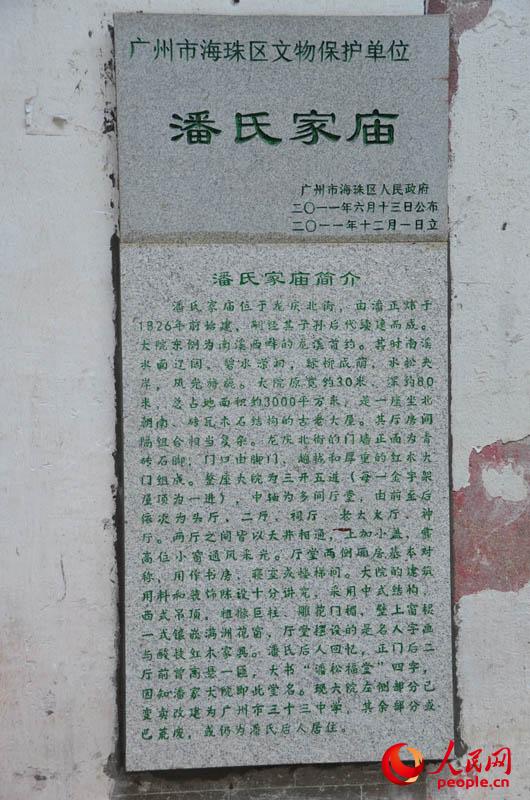 广州市海珠区文物保护单位
潘氏家庙
广州市海珠区人民政府
二〇一一年六月十三日公布
二〇一一年十二月一日立
潘氏家庙简介
潘氏家庙位于龙庆北街，由潘正炜于
1826年前始建，嗣经其子孙后代续建而成。
大院东侧为南溪西畔的龙溪首约。其时南溪
水面辽阔，碧水漾洄，绿桥成荫，水松夹
岸，风光旖旎。大院原宽约30米，深约80
米，总占地面积约3000平方米，是一座坐北
朝南、砖瓦木石结构的古老大屋。其厅房间
隔组合相当复杂。龙庆北街的门墙正面为青
砖石脚，门口由脚门、趟栊和厚重的红木大
门组成。整座大院为三开五进（每一金字架
屋顶为一进），中轴为多间厅堂，由前至后
依次为头厅，二厅、祠厅、老太太厅、神
厅。两厅之间皆以天井相通，上加小盖，靠
高位小窗通风采光。厅堂两侧厢房基本对
称，用作书房、寝室或楼梯间。大院的建筑
用料和装饰陈设十分讲究，采用中式结构，
西式吊顶，粗椽巨柱、雕花门楣，壁上窗棂
一式镶嵌满洲花窗，厅堂摆设的是名人字画
与酸枝红木家具。潘氏后人回忆，正门后二
厅前曾高悬一匾，大书“潘松福堂”四字，
因知潘家大院即此堂名。现大院左侧部分已
变卖改建为广州市三十三中学，其余部分或
已荒废，或仍为潘氏后人居住。
人民网
people.cn